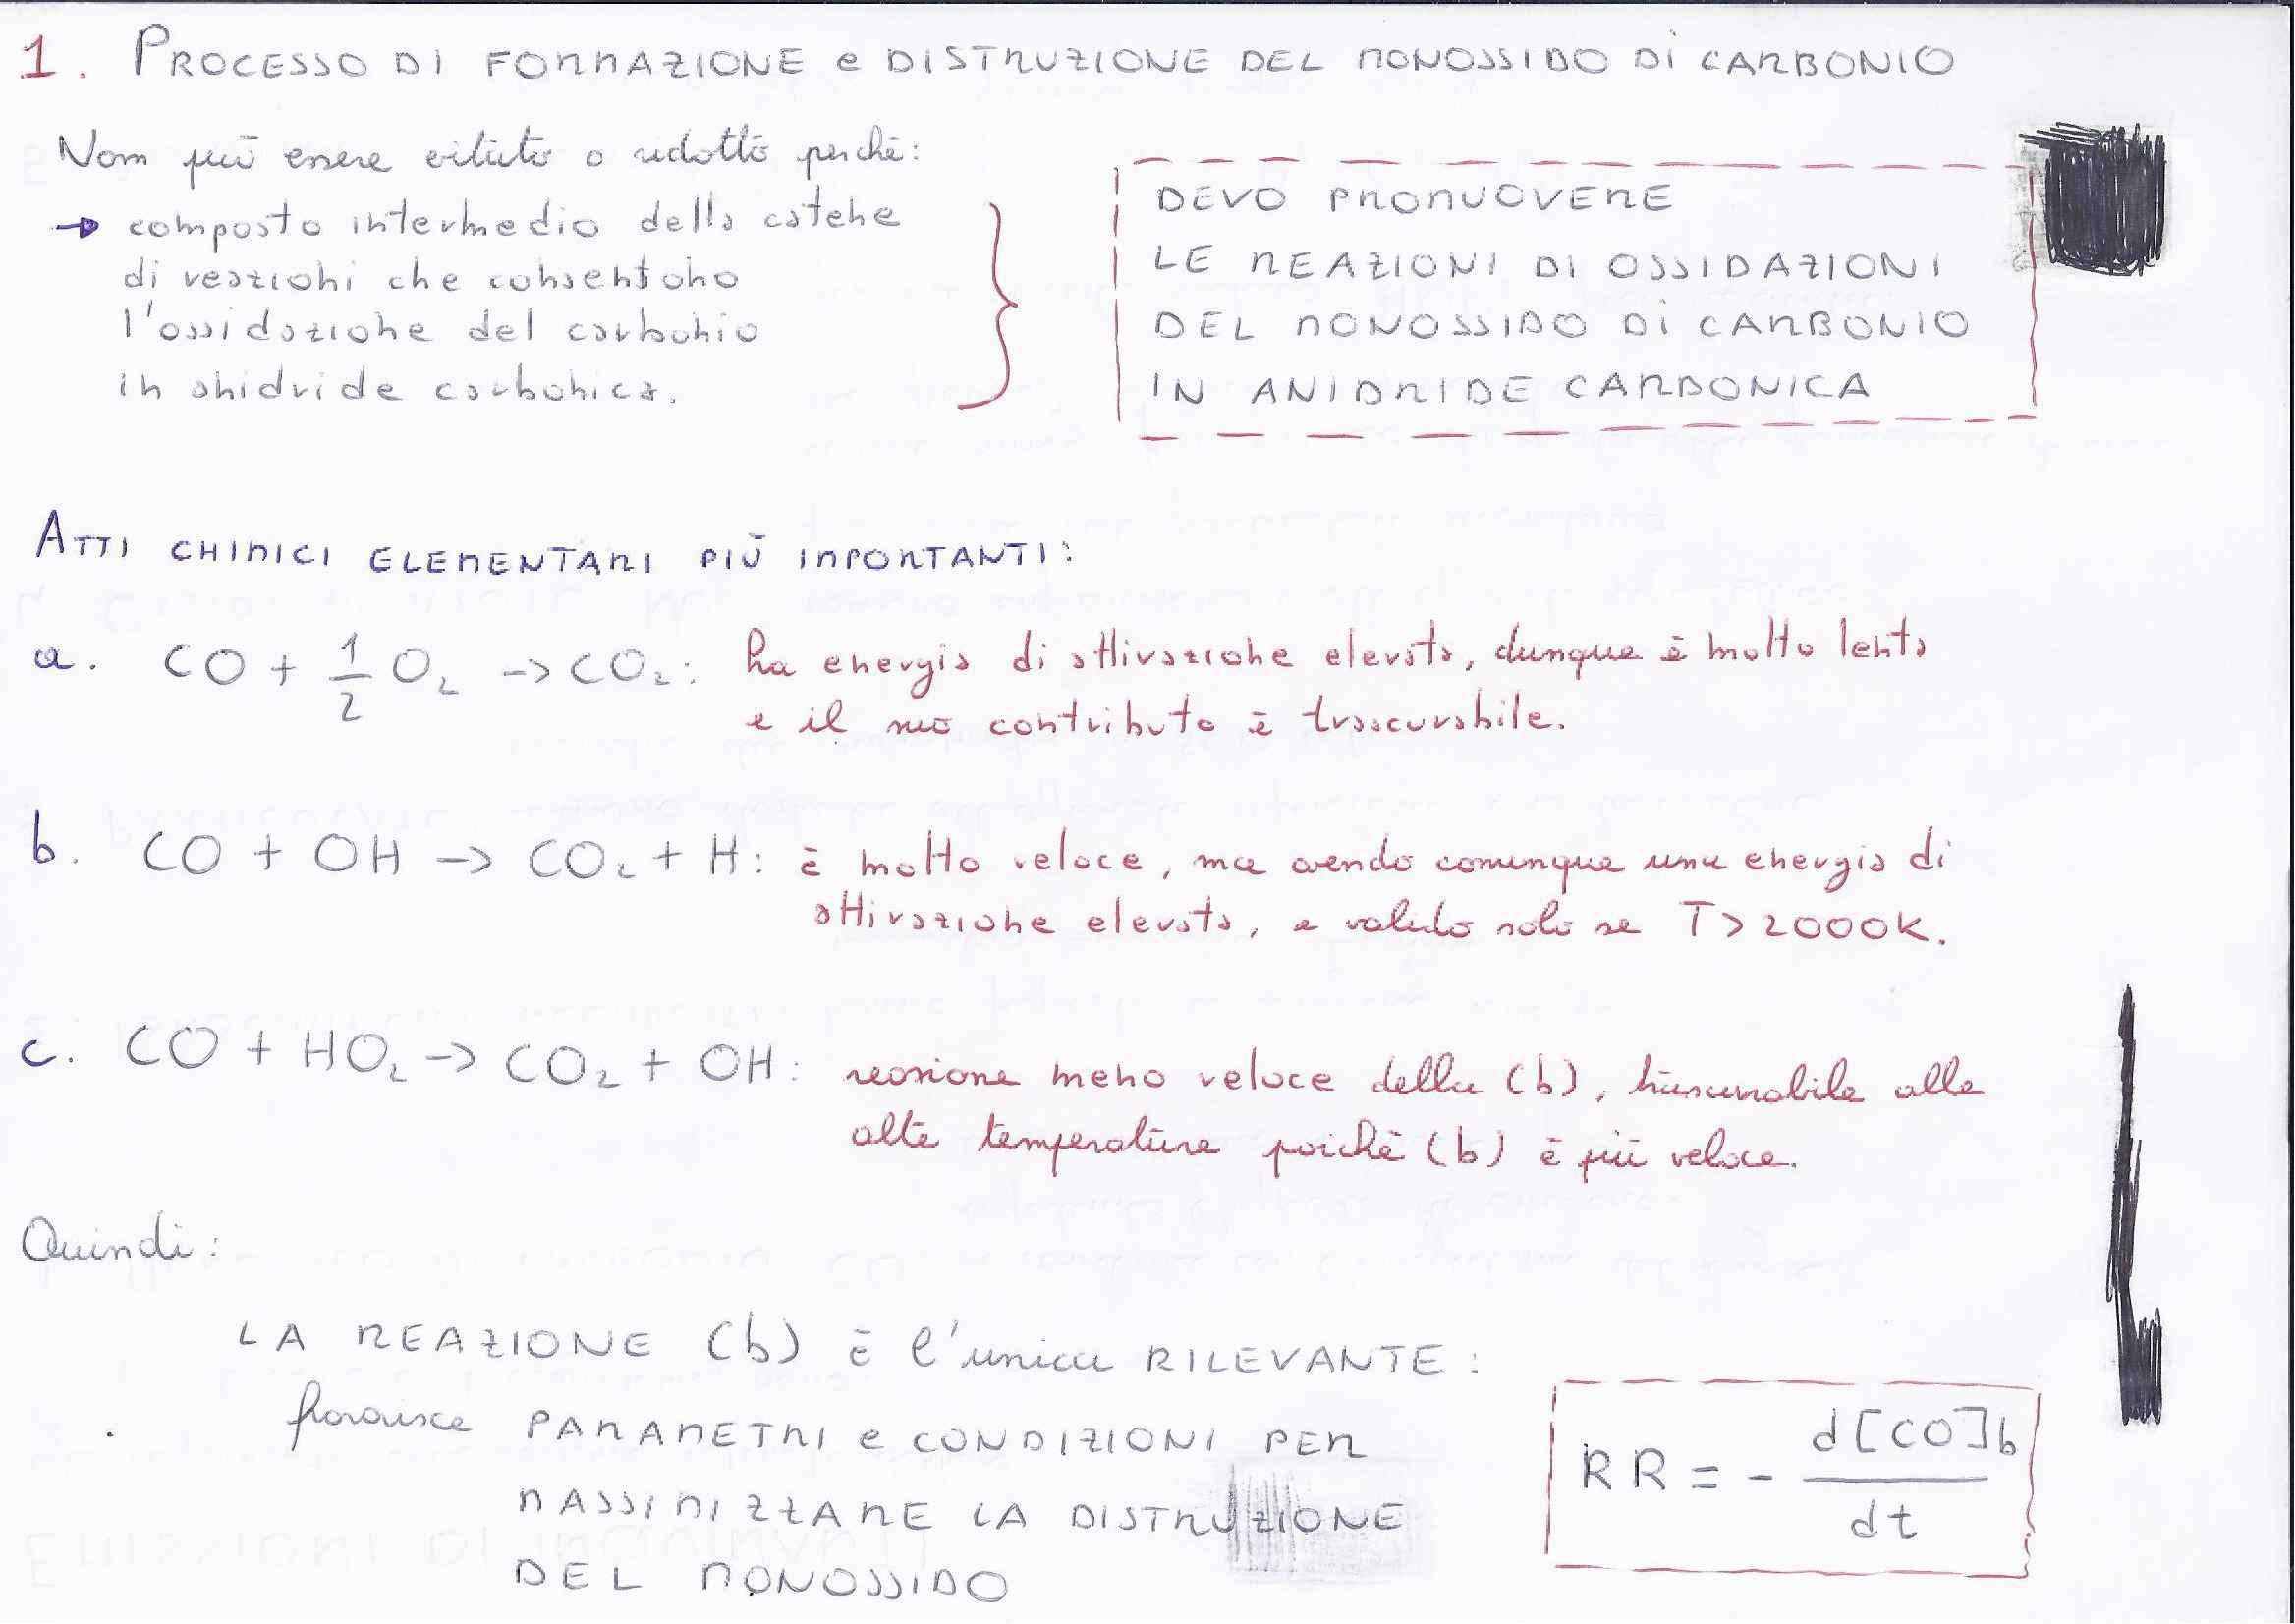 1. PROCESSO DI FORMAZIONE e DISTRUZIONE DEL MONOSSIDO DI CARBONIO
Non può essere evitato o ridotto perché:
→ composto intermedio della catene
di reazioni che consentono
l'ossidazione del carbonio
in anidride carbonica.
DEVO PROMUOVERE
LE REAZIONI DI OSSIDAZIONI
DEL MONOSSIDO DI CARBONIO
IN ANIDRIDE CARBONICA
ATTI CHIMICI ELEMENTARI PIÙ IMPORTANTI:
a. CO + 1/2 O₂ -> CO₂: ha energia di attivazione elevata, dunque è molto lenta
e il suo contributo è trascurabile.
b. CO + OH -> CO₂ + H: è molto veloce, ma avendo comunque una energia di
attivazione elevata, e valido solo se T > 2000K.
c. CO + HO₂ -> CO₂ + OH: reazione meno veloce della (b), trascurabile alle
alte temperature poiché (b) è più veloce.
Quindi:
LA REAZIONE (b) è l'unica RILEVANTE:
fornisce PARAMETRI e CONDIZIONI PER
MASSIMIZZARE LA DISTRUZIONE
DEL MONOSSIDO
RR = - d[CO]b / dt